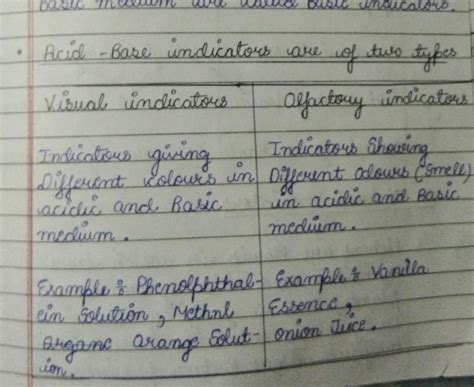 Basic medium are called Basic indicators.
• Acid - Base indicators are of two types
Visual indicators
Indicators giving
Different colours in
acidic and Basic
medium.
Example : Phenolphthal-
ein Solution, Methnl
Argane Orange Solut-
ion.
Olfactory indicators
Indicators Showing
Different odours (Smell)
in acidic and Basic
medium.
Example : Vanilla
Essence,
onion Juice.